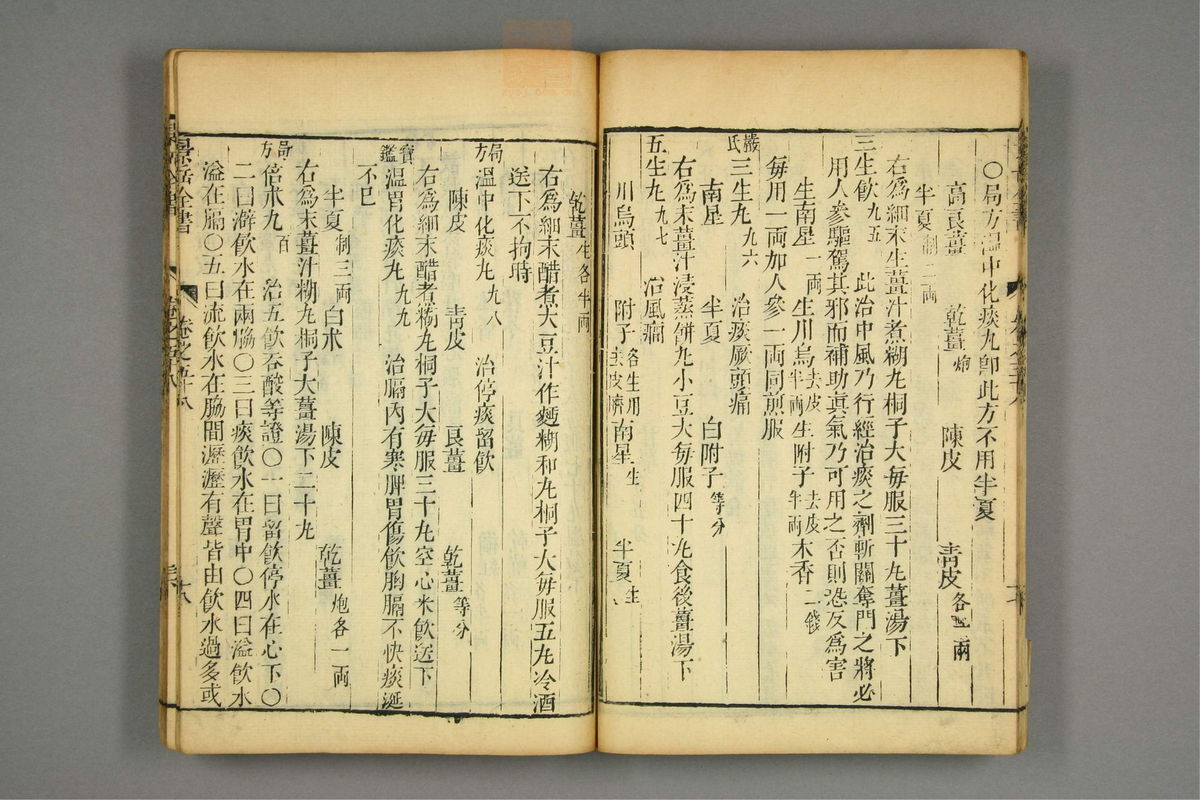 〇局方溫中化痰丸卽此方不用半夏
高良薑 乾薑炮 陳皮 靑皮各 兩
半夏制二兩
右爲細末生薑汁煮糊丸桐子大每服三十丸薑湯下
三生飲九五 此治中風乃行經治痰之劑斬關奪門之將必
用人參驅駕其邪而補助眞氣乃可用之否則恐反爲害
生南星一兩 生川烏去皮半兩 生附子去皮半兩 木香二錢
每用一兩加人參一兩同煎服
嚴氏三生丸九六 治痰厥頭痛
南星 半夏 白附子等分
右爲末薑汁浸蒸餅丸小豆大每服四十丸食後薑湯下
五生丸九七 治風癎
川烏頭 附子各生用去皮臍 南星生 半夏生
乾薑生各半兩
右爲細末醋煮大豆汁作麪糊和丸桐子大每服五丸冷酒
送下不拘時
局方溫中化痰丸九八 治停痰留飲
陳皮 靑皮 良薑 乾薑等分
右爲細末醋煮糊丸桐子大每服三十丸空心米飲送下
寶鑑溫胃化痰丸九九 治膈內有寒脾胃傷飲胸膈不快痰涎
不已
半夏制三兩 白朮 陳皮 乾薑炮各一兩
右爲末薑汁糊丸桐子大薑湯下二十丸
局方倍朮丸百 治五飲吞酸等證〇一曰留飲停水在心下〇
二曰澼飲水在兩脇〇三曰痰飲水在胃中〇四曰溢飲水
溢在膈〇五曰流飲水在脇間瀝瀝有聲皆由飲水過多或
景岳全書 卷之五十八 十八